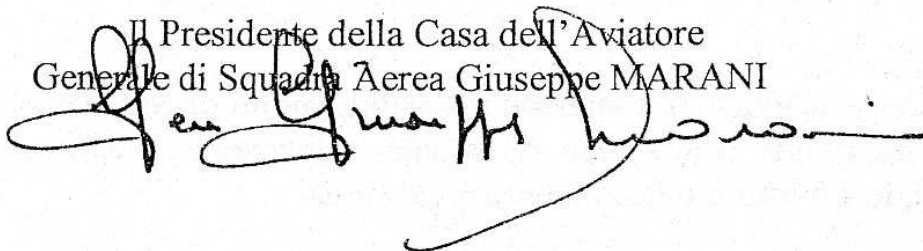 Il Presidente della Casa dell'Aviatore
Generale di Squadra Aerea Giuseppe MARANI
Gen Giuseppe Marani